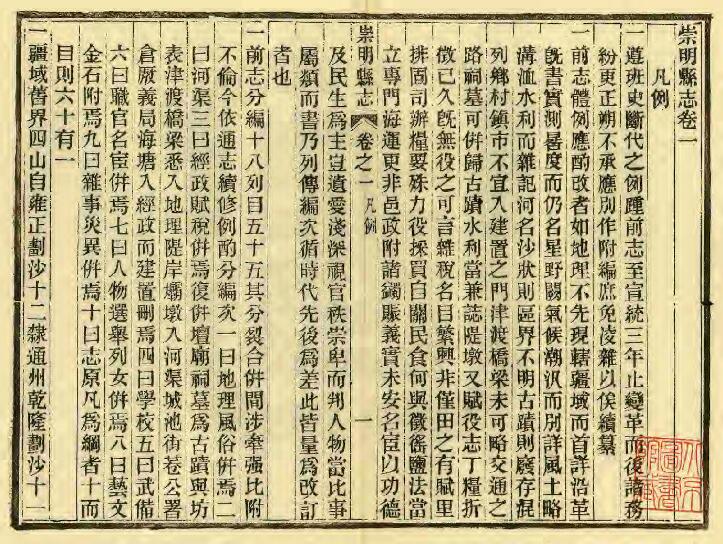 崇明縣志卷一
凡例
一遵班史斷代之例踵前志至宣統三年止變革而後諸務
紛更正朔不承應別作附編庶免凌雜以俟續纂
一前志體例應酌改者如地理不先現轄疆域而首詳沿革
旣書實測晷度而仍名星野闕氣候潮汛而別詳風土略
溝洫水利而雜記河名沙狀則區界不明古蹟則廢存混
列鄉村鎭市不宜入建置之門津渡橋梁未可略交通之
路祠墓可併歸古蹟水利當兼誌隄墩又賦役志丁糧折
徵已久旣無役之可言雜稅名目繁興非僅田之有賦里
排圖司辦糧要殊力役採買自關民食何與徵徭鹽法當
立專門海運更非邑政附諸蠲賑義實未安名宦以功德
崇明縣志
卷之一 凡例
一
及民生爲主豈遺愛淺深視官秩崇卑而邦人物當比事
屬類而書乃列傳編次循時代先後爲差此皆量爲改訂
者也
一前志分編十八列目五十五其分裂合併間涉牽強比附
不倫今依通志續修例酌分編次一曰地理風俗併焉二
曰河渠三曰經政賦稅併焉復併壇廟祠墓爲古蹟與坊
表津渡橋梁悉入地理隄岸壩墩入河渠城池街巷公署
倉廒義局海塘入經政而建置刪焉四曰學校五曰武備
六曰職官名宦併焉七曰人物選舉列女併焉八曰藝文
金石附焉九曰雜事災異併焉十曰志原凡爲綱者十而
目則六十有一
一疆域舊界四山自雍正劃沙十二隸通州乾隆劃沙十一